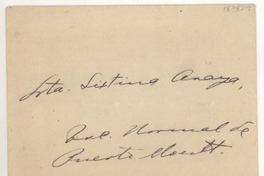 Srta. Sixtina Araya,
Esc. Normal de
Puerto Montt.